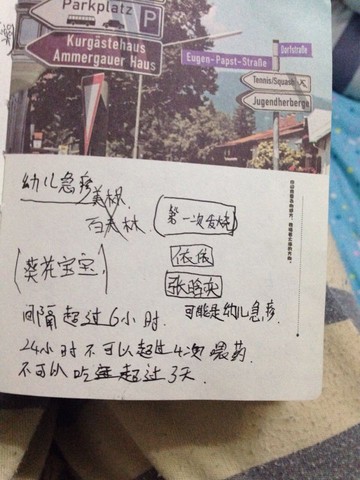 Parkplatz P
Kurgästehaus
Ammergauer Haus
Eugen-Papst-Straße
Dorfstraße
Tennis/Squash
Jugendherberge
幼儿急疹
美林
百未林
第一次发烧
葵花宝宝
依依
张晗奕
间隔超过6小时.
可能是幼儿急疹.
24小时不可以超过4次喂药.
不可以吃超过3天.